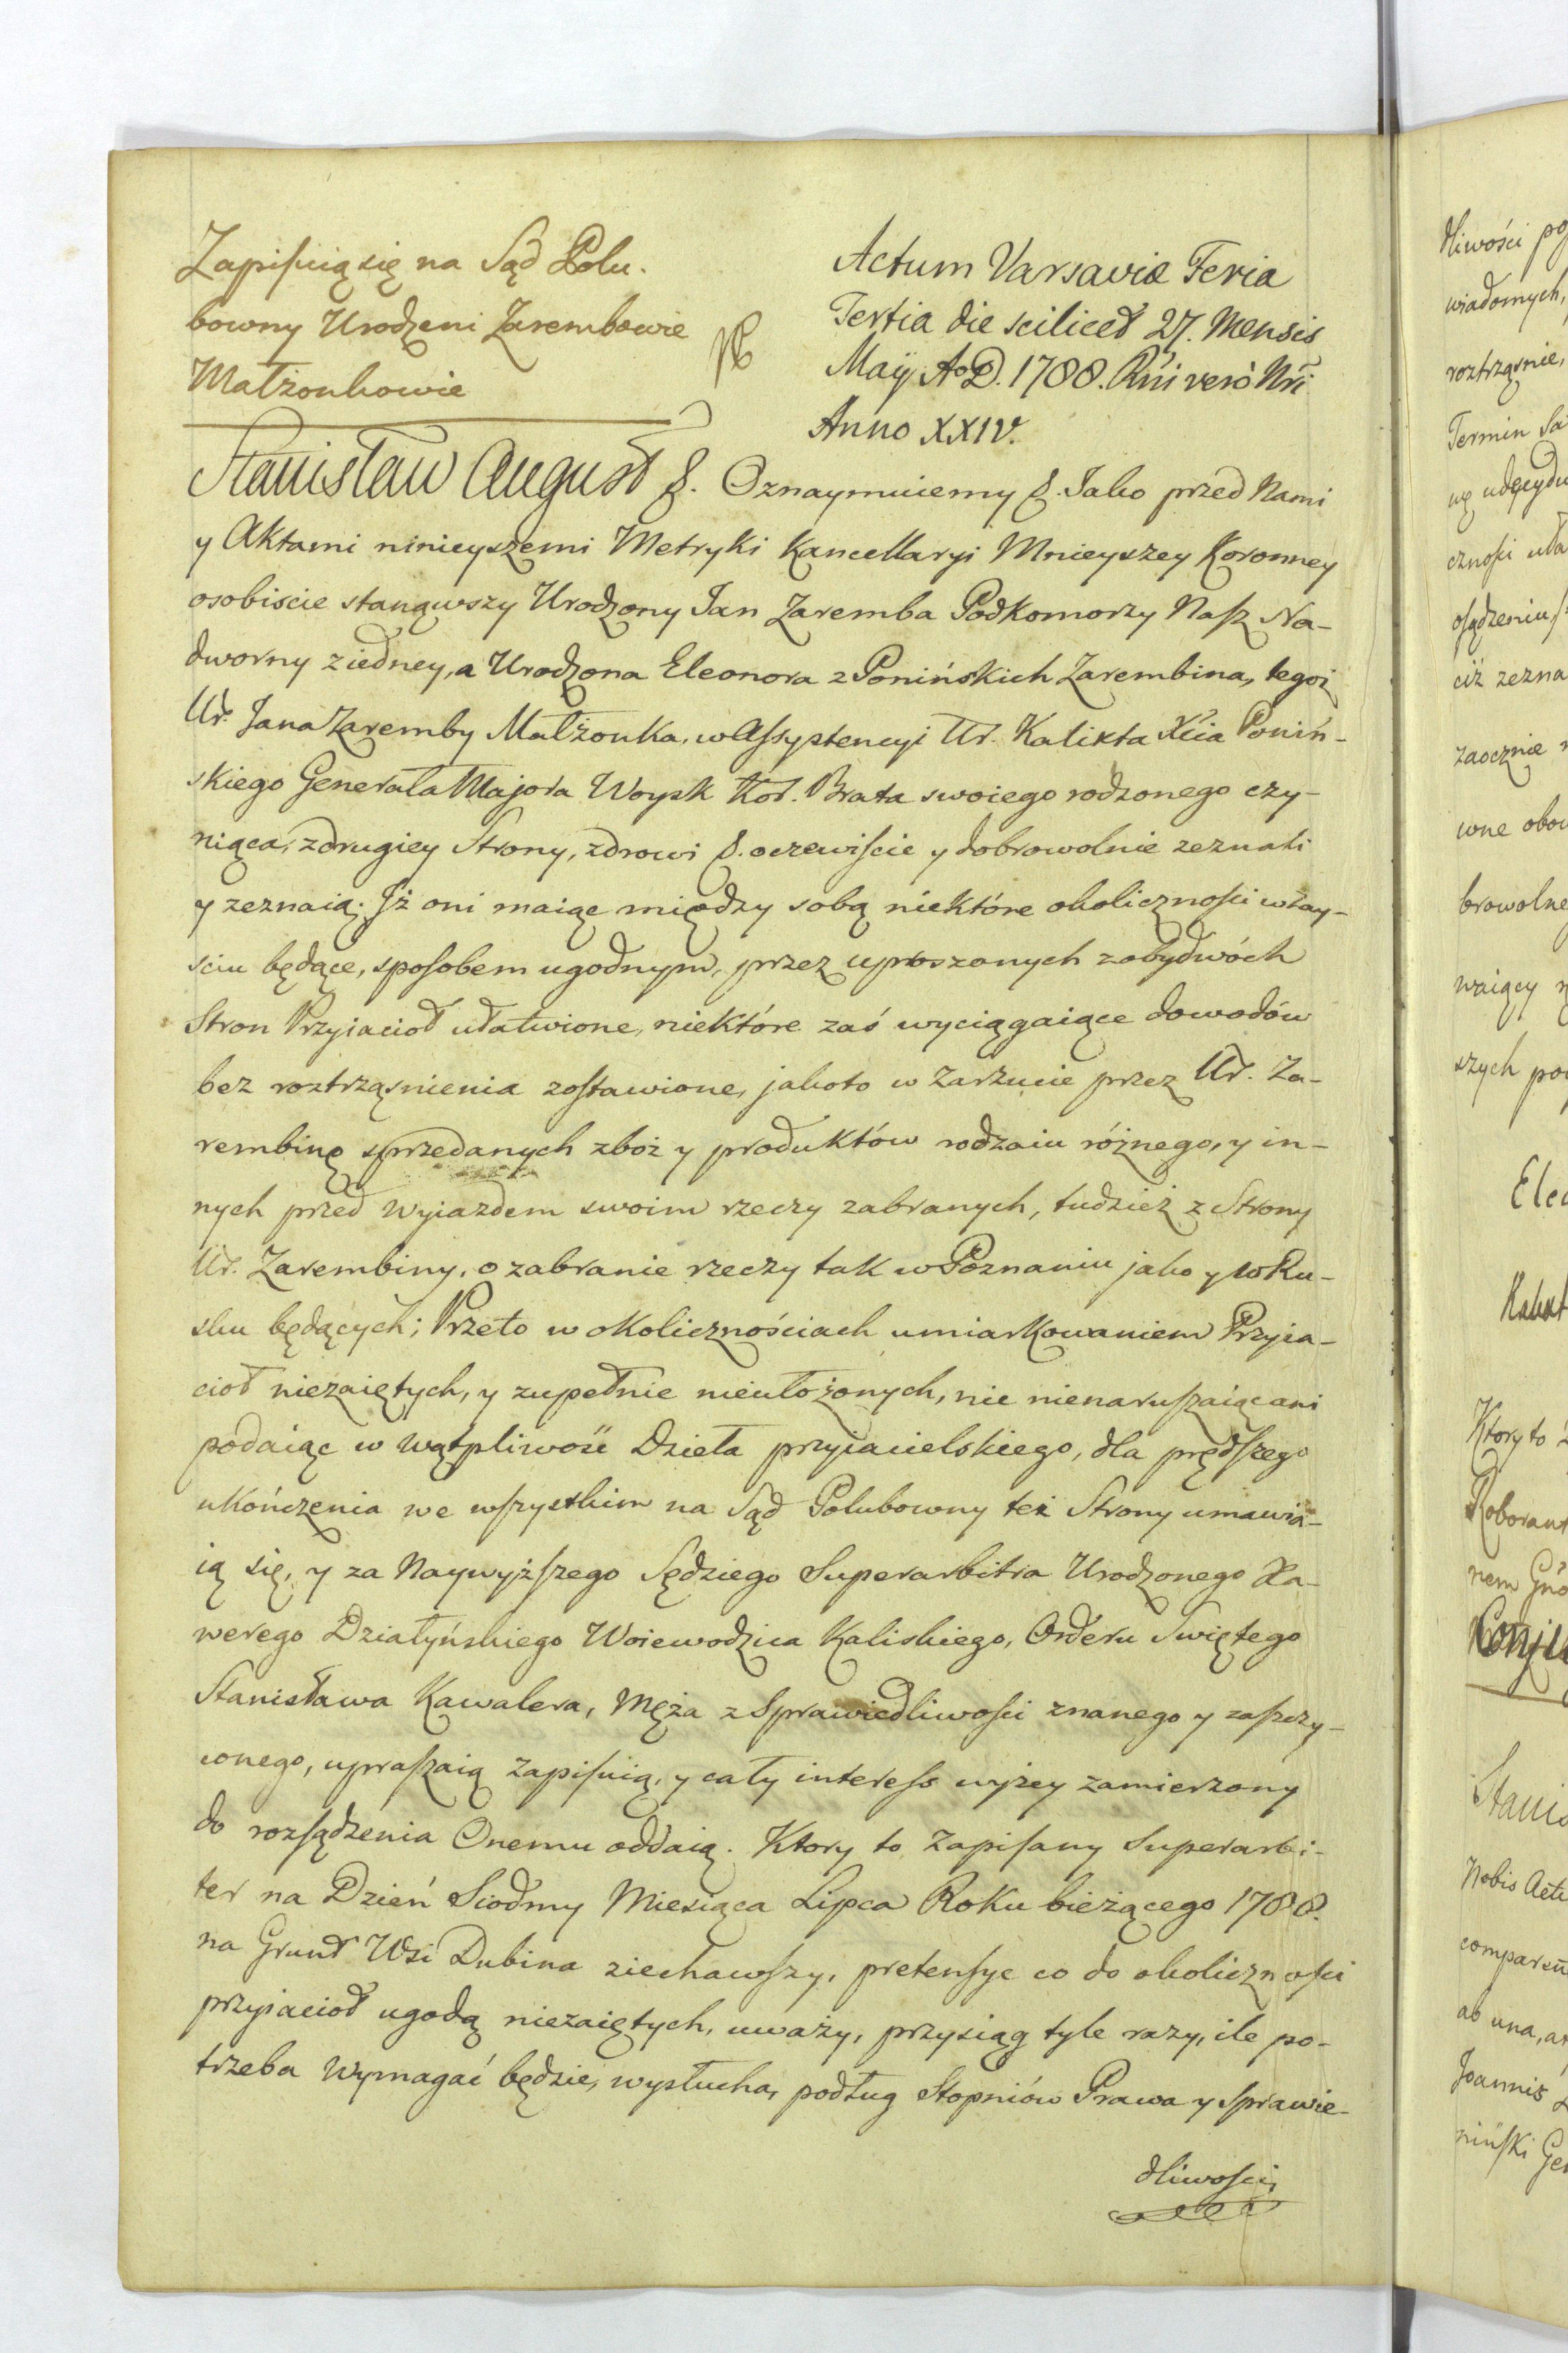 Zapisuią się na Sąd Polu-
bowny Urodzeni Zarembowie
Małżonkowie
Actum Varsaviæ Feria
Tertia die scilicet 27. Mensis
Maÿ A°D. 1788. Rni verò Nri
Anno XXIV.
Stanisław August &. Oznaymuiemy &. Jako przed Nami
y Aktami ninieyszemi Metryki Kancellaryi Mnieyszey Koronney
osobiscie stanąwszy Urodzony Jan Zaremba Podkomorzy Nasz Na-
dworny z iedney, a Urodzona Eleonora z Ponińskich Zarembina, tegoż
Ur. Jana Zaremby Małżonka, w Assystencyi Ur. Kalixta Xcia Poniń-
skiego Generała Majora Woysk Kor. Brata swoiego rodzonego czy-
niąca, z drugiey Strony, zdrowi &. oczewiście y dobrowolnie zeznali
y zeznaią. Jż oni maiąc między sobą niektóre okoliczności w zay-
ściu będące, sposobem ugodnym, przez uproszonych z obydwóch
Stron Przyiacioł ułatwione, niektóre zaś wyciągaiące dowodów
bez roztrząsnienia zostawione, jakoto w Zarzucie przez Ur. Za-
rembinę sprzedanych zboż y produktów rodzaiu różnego, y in-
nych przed wyiazdem swoim rzeczy zabranych, tudzież z Strony
Ur. Zarembiny, o zabranie rzeczy tak w Poznaniu jako y w Ru-
sku będących; Przeto w okolicznościach umiarkowaniem Przyia-
cioł niezaiętych, y zupełnie nieułożonych, nic nienaruszaiąc ani
podaiąc w wątpliwość Dzieła przyiacielskiego, dla prędszego
ukończenia we wszystkim na Sąd Polubowny też Strony umawia-
ią się, y za Naywyższego Sędziego Superarbitra Urodzonego Xa-
werego Działyńskiego Woiewodzica Kaliskiego, Orderu Swiętego
Stanisława Kawalera, Męża z Sprawiedliwości znanego y zaszczy-
conego, upraszaią zapisuią, y cały interess wyżey zamierzony
do rozsądzenia Onemu oddaią. Ktory to Zapisany Superarbi-
ter na Dzień Siodmy Miesiąca Lipca Roku bieżącego 1788.
na Grunt Wsi Dubina ziechawszy, pretensye co do okoliczności
przyiacioł ugodą niezaiętych, uważy, przysiąg tyle razy, ile po-
trzeba wymagać będzie, wysłucha, podług Stopniów Prawa y sprawie-
dliwości,